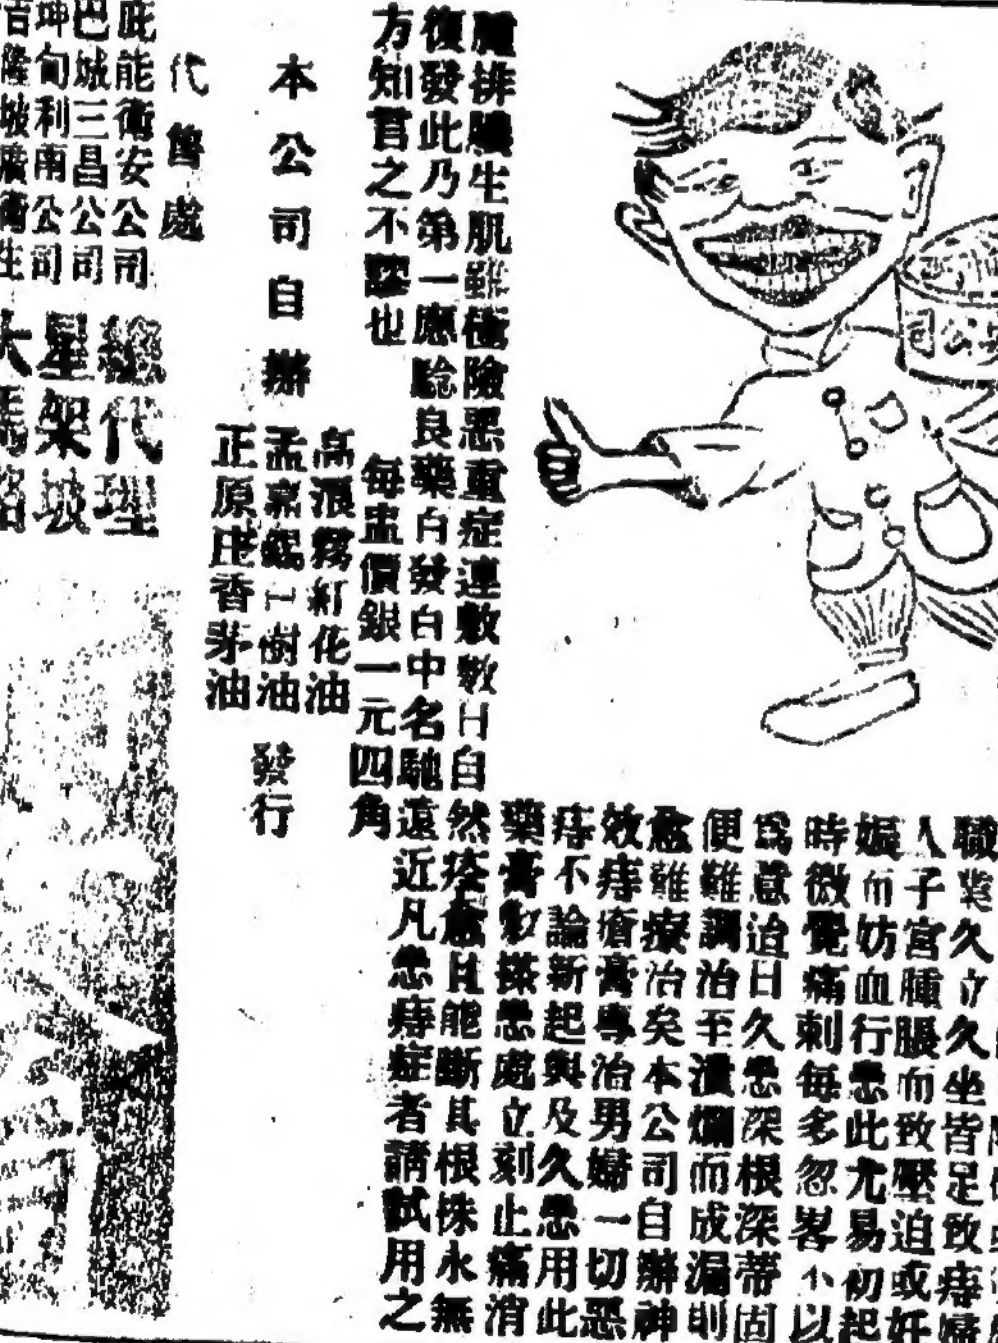 職業久立久坐皆足致痔
人子宮腫脹而致壓迫或妊
娠而妨血行患此尤易初起
時微覺痛刺每多忽畧不以
為意迨日久患深根深蒂固
便難調治至潰爛而成漏則
愈難療治矣本公司自辦神
效痔瘡膏專治男婦一切惡
痔不論新起與及久患用此
藥膏敷搽患處立刻止痛消
腫排膿生肌雖極險惡重症連敷數日自然痊愈且能斷其根株永無
復發此乃第一應驗良藥自發白中名馳遠近凡患痔症者請試用之
方知言之不謬也
每盅價銀一元四角
公司
本公司自辦
高浪霧紅花油
孟嘉錫工樹油
正原庄香茅油
發行
代售處
庇能衛安公司
巴城三昌公司
坤甸利南公司
吉隆坡廣衛生
總代理
星架坡
大馬路